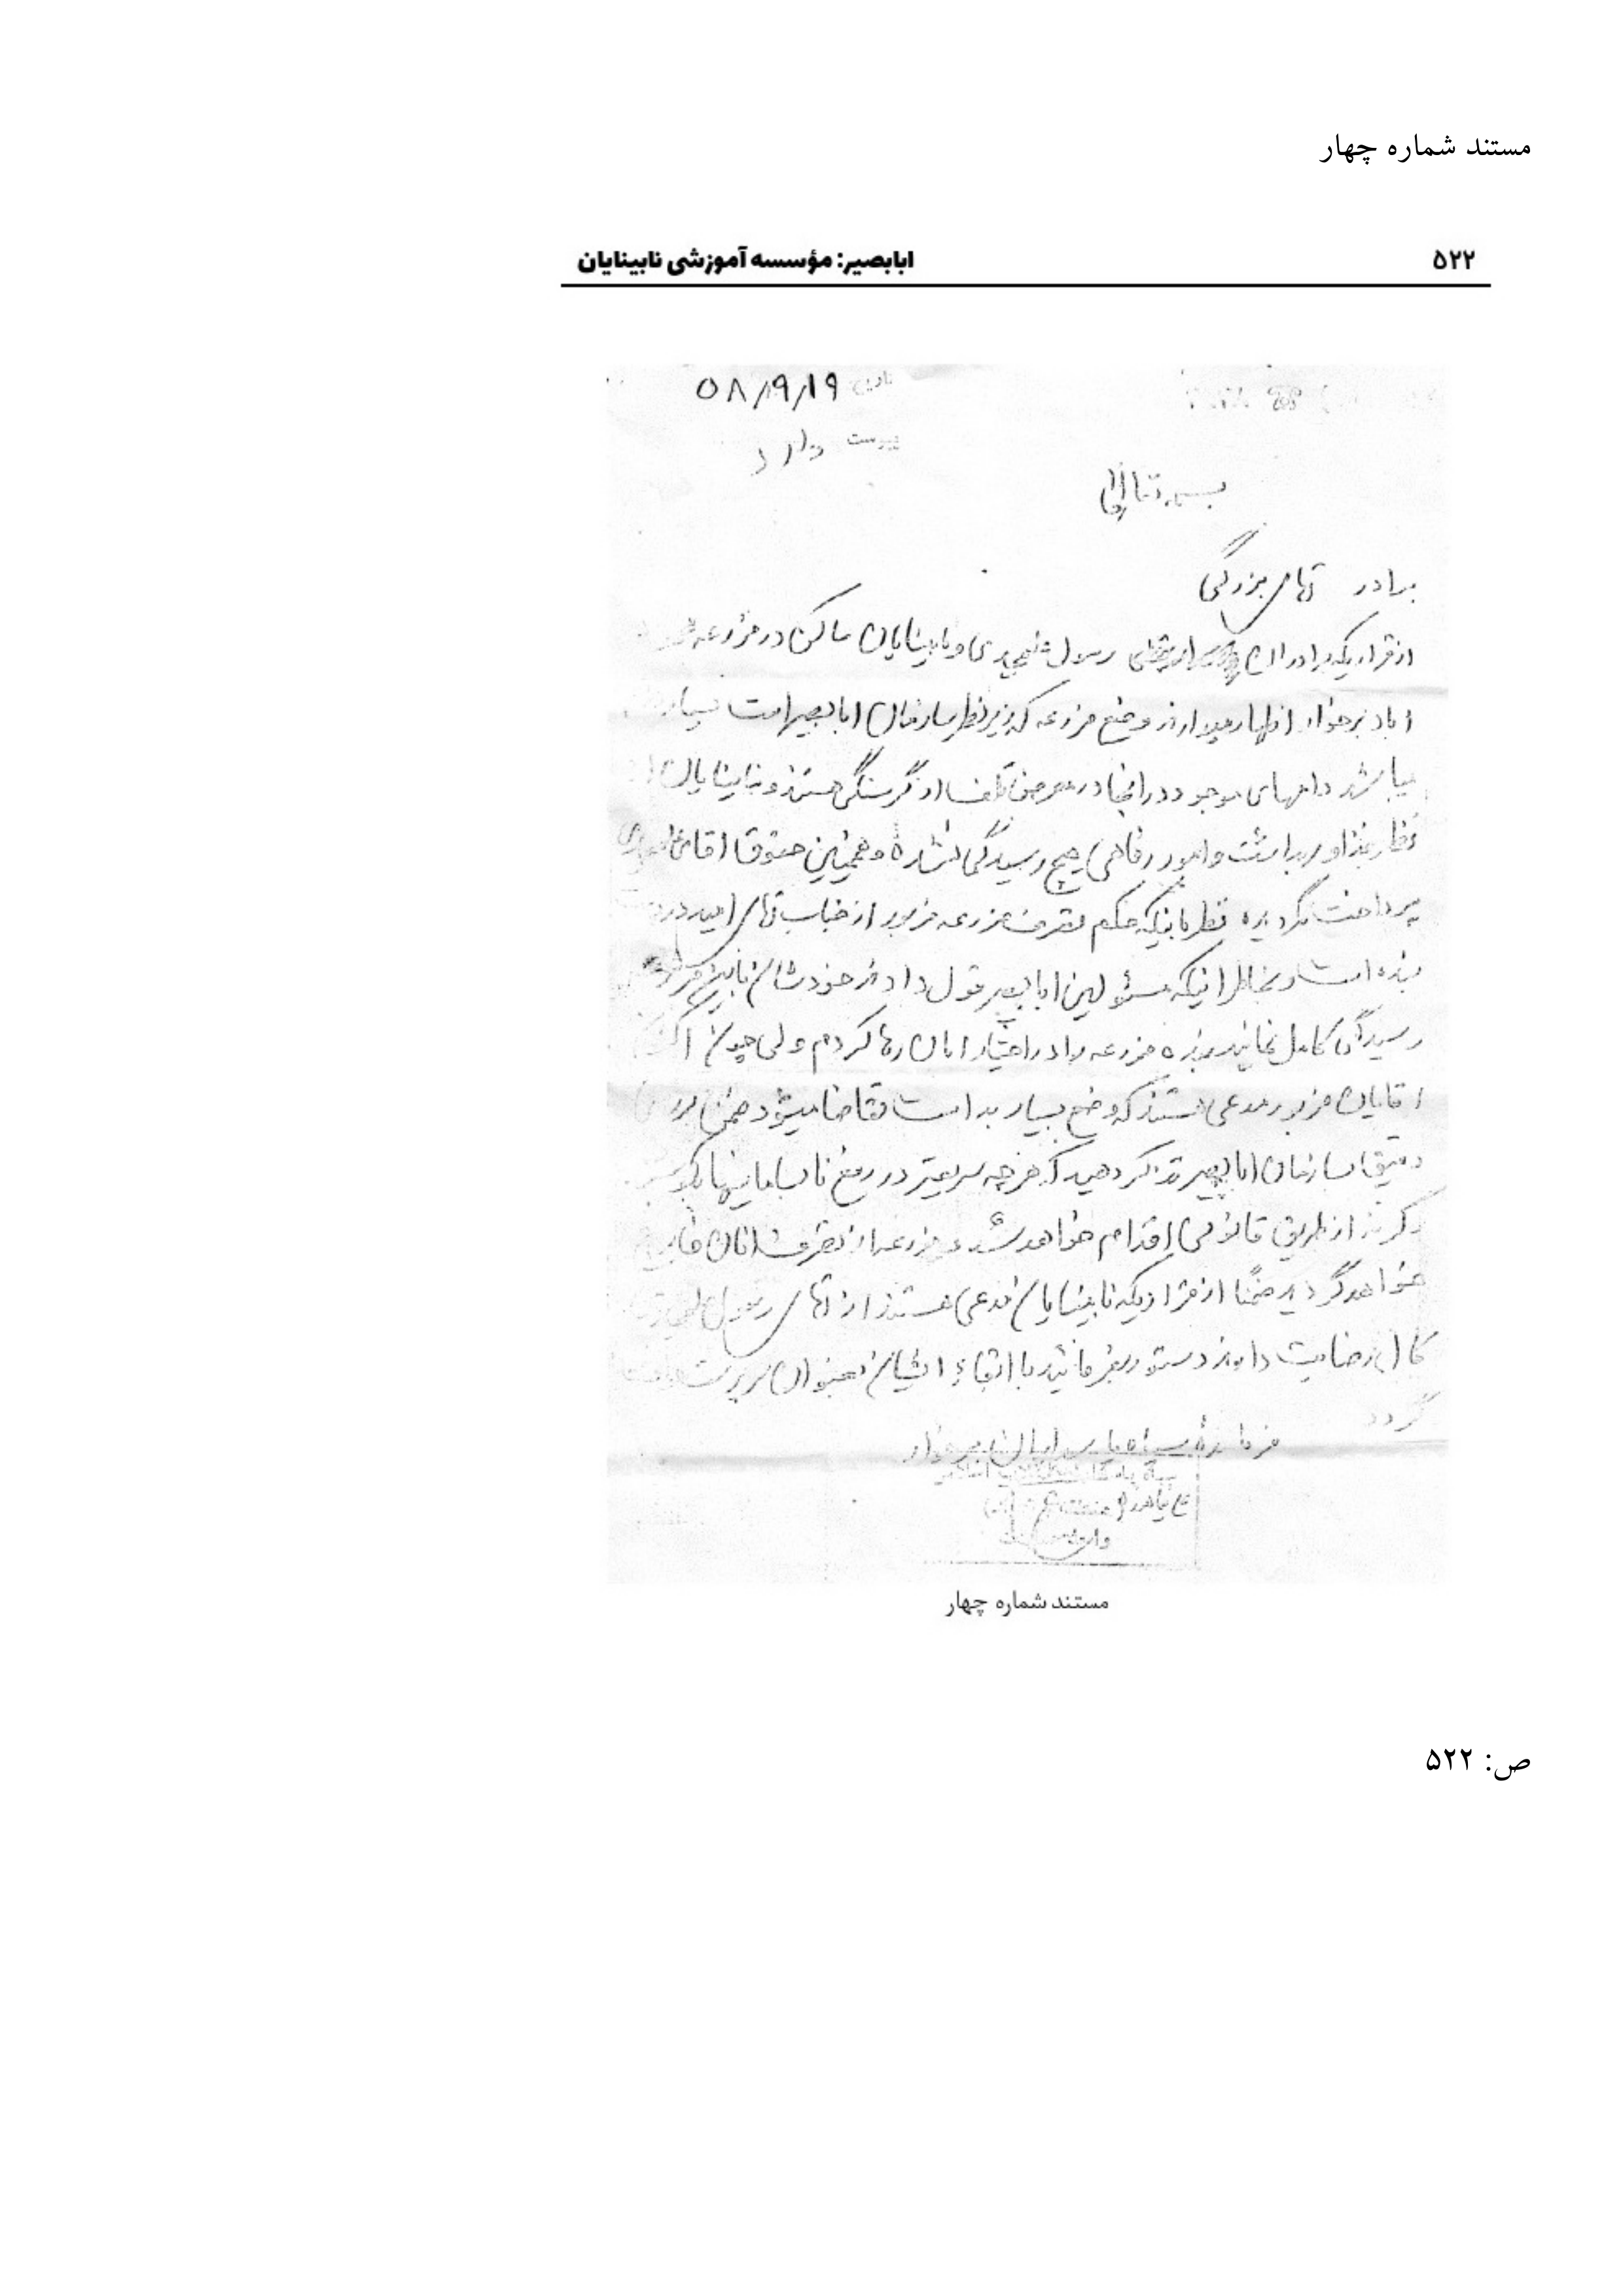 مستند شماره چهار
۵۲۲
ابابصیر: مؤسسه آموزشی نابینایان
تاریخ ۵۸/۹/۱۹
پیوست دارد
بسمه تعالی
برادر آقای بزرگی
از قراریکه برادران رسول و نابینایان ساکن در مزرعه
اباد برخوار اظهار میدارند وضع مزرعه که زیر نظر سازمان ابابصیر است بسیار
میباشد دامهای موجود در انجا در معرض تلف از گرسنگی هستند و نابینایان از
نظر غذا و بهداشت و امور رفاهی هیچ رسیدگی نشده و همچنین حقوق اقای
پرداخت نگردیده نظر باینکه حکم تصرف مزرعه مزبور از جناب آقای امید
بنده است و بخاطر اینکه مسئولین ابابصیر قول دادند خودشان
رسیدگی کامل نمایند بنده مزرعه را در اختیار انان رها کردم ولی چون
اقایان مزبور مدعی هستند که وضع بسیار بد است تقاضا میشود ضمن بررسی
دقیق بسازمان ابابصیر تذکر دهید که هرچه سریعتر در رفع نابسامانیها
وگرنه از طریق قانونی اقدام خواهد شد و مزرعه از تصرف انان خارج
خواهد گردید ضمنا از قراریکه نابینایان مدعی هستند از آقای رسول
کاملا رضایت دارند دستور بفرمائید با ابقاء ایشان بعنوان سرپرست
گردد
فرمانده سپاه پاسداران برخوار
مستند شماره چهار
ص: ۵۲۲